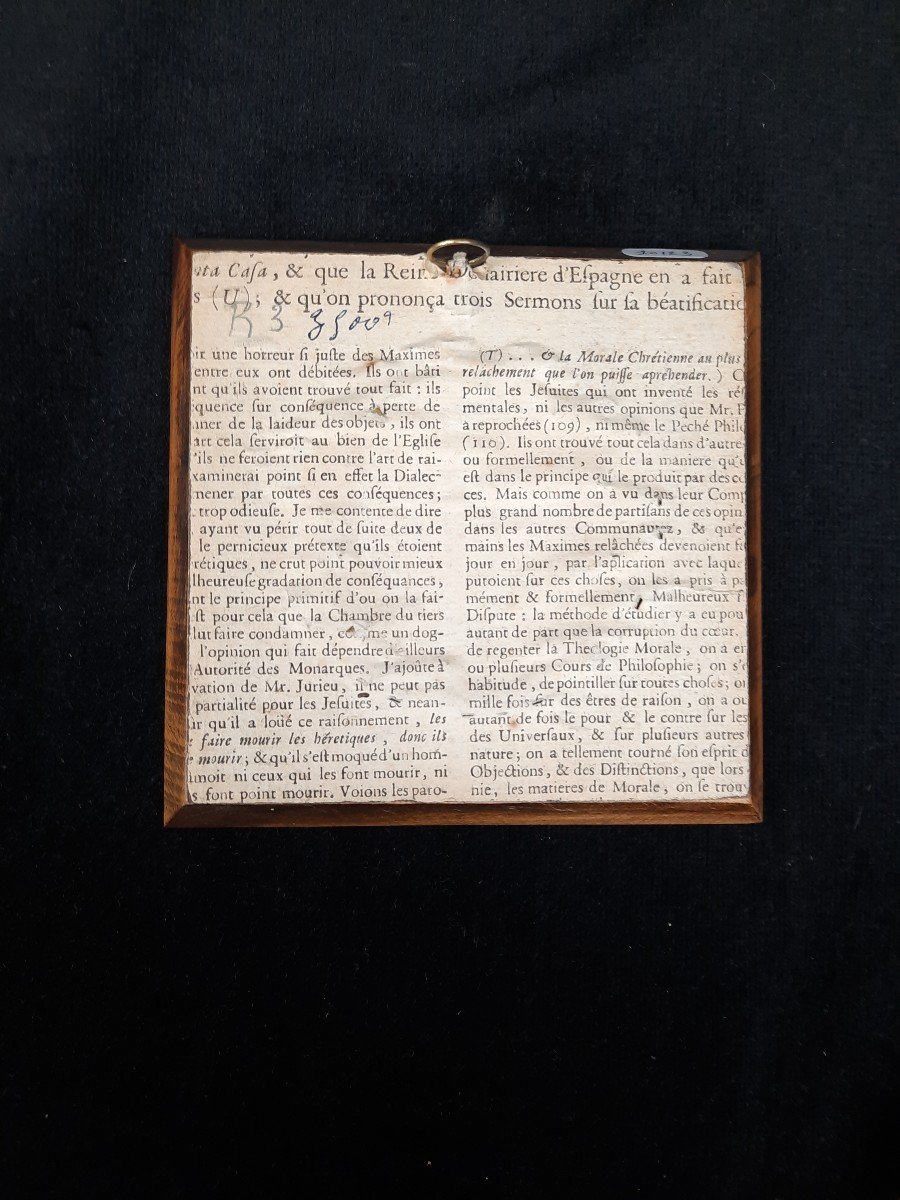 nta Caſa, & que la Reine Doüairiere d'Eſpagne en a fait
s (U); & qu'on prononça trois Sermons ſur ſa béatificatio
20123
R 3
oir une horreur ſi juſte des Maximes
entre eux ont débitées. Ils ont bâti
nt qu'ils avoient trouvé tout fait : ils
équence ſur conſéquence à perte de
ner de la laideur des objets, ils ont
art cela ſerviroit au bien de l'Egliſe
'ils ne feroient rien contre l'art de rai-
xaminerai point ſi en effet la Dialec-
mener par toutes ces conſéquences;
trop odieuſe. Je me contente de dire
ayant vu périr tout de ſuite deux de
le pernicieux prétexte qu'ils étoient
rétiques, ne crut point pouvoir mieux
lheureuſe gradation de conſéquances,
nt le principe primitif d'ou on la fai-
ſt pour cela que la Chambre du tiers
lut faire condamner, comme un dog-
l'opinion qui fait dépendre d'ailleurs
Autorité des Monarques. J'ajoûte à
vation de Mr. Jurieu, il ne peut pas
partialité pour les Jeſuites, & néan-
ir qu'il a loüé ce raiſonnement, les
faire mourir les héretiques, donc ils
mourir; & qu'il s'eſt moqué d'un hom-
moit ni ceux qui les font mourir, ni
s font point mourir. Voions les paro-
(T) ... & la Morale Chrétienne au plus
relâchement que l'on puiſſe apréhender.) C
point les Jeſuites qui ont inventé les réſ
mentales, ni les autres opinions que Mr. P
a reprochées (109), ni même le Peché Philo
(110). Ils ont trouvé tout cela dans d'autre
ou formellement, ou de la maniere qu'u
eſt dans le principe qui le produit par des co
ces. Mais comme on a vu dans leur Comp
plus grand nombre de partiſans de ces opin
dans les autres Communautez, & qu'e
mains les Maximes relâchées devenoient
jour en jour, par l'aplication avec laque
putoient ſur ces choſes, on les a pris à p
mément & formellement. Malheureux f
Diſpute : la méthode d'étudier y a eu pou
autant de part que la corruption du cœur.
de regenter la Theologie Morale, on a en
ou pluſieurs Cours de Philoſophie; on s'e
habitude, de pointiller ſur toutes choſes; on
mille fois ſur des êtres de raiſon, on a ou
autant de fois le pour & le contre ſur les
des Univerſaux, & ſur pluſieurs autres
nature; on a tellement tourné ſon eſprit d
Objections, & des Diſtinctions, que lors
nie, les matieres de Morale, on ſe trouv